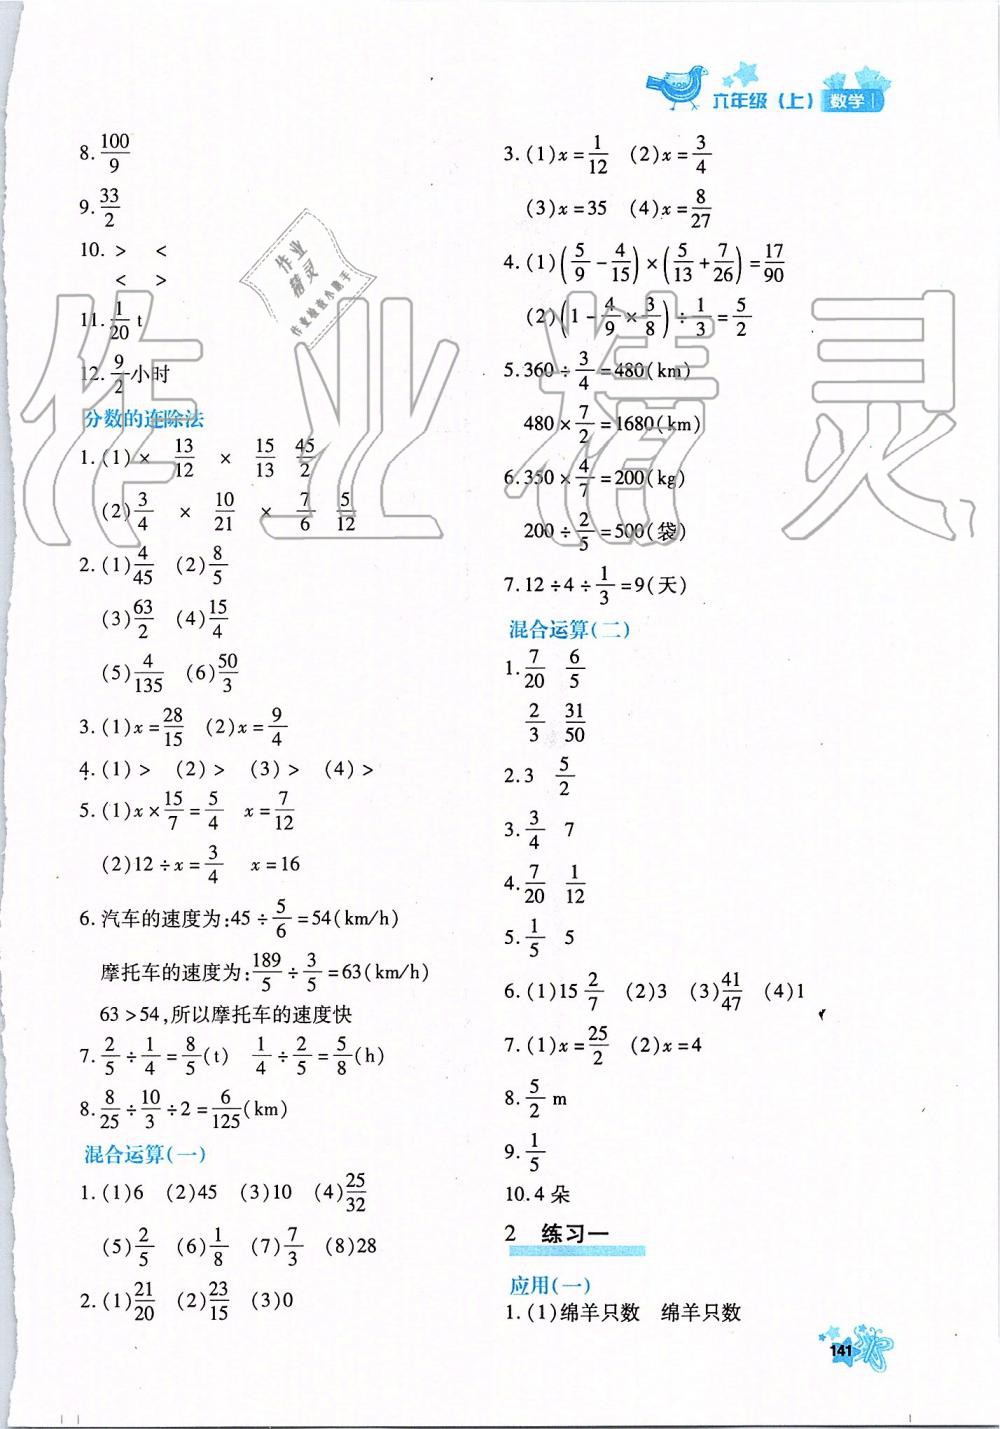 六年级（上） 数学
8. 100/9
9. 33/2
10. > <
< >
11. 1/20 t
12. 9/2 小时
分数的连除法
1. (1) × 13/12 × 15/13 45/2
(2) 3/4 × 10/21 × 7/6 5/12
2. (1) 4/45 (2) 8/5
(3) 63/2 (4) 15/4
(5) 4/135 (6) 50/3
3. (1) x = 28/15 (2) x = 9/4
4. (1) > (2) > (3) > (4) >
5. (1) x × 15/7 = 5/4 x = 7/12
(2) 12 ÷ x = 3/4 x = 16
6. 汽车的速度为: 45 ÷ 5/6 = 54 (km/h)
摩托车的速度为: 189/5 ÷ 3/5 = 63 (km/h)
63 > 54, 所以摩托车的速度快
7. 2/5 ÷ 1/4 = 8/5 (t) 1/4 ÷ 2/5 = 5/8 (h)
8. 8/25 ÷ 10/3 ÷ 2 = 6/125 (km)
混合运算(一)
1. (1) 6 (2) 45 (3) 10 (4) 25/32
(5) 2/5 (6) 1/8 (7) 7/3 (8) 28
2. (1) 21/20 (2) 23/15 (3) 0
3. (1) x = 1/12 (2) x = 3/4
(3) x = 35 (4) x = 8/27
4. (1) (5/9 - 4/15) × (5/13 + 7/26) = 17/90
(2) (1 - 4/9 × 3/8) ÷ 1/3 = 5/2
5. 360 ÷ 3/4 = 480 (km)
480 × 7/2 = 1680 (km)
6. 350 × 4/7 = 200 (kg)
200 ÷ 2/5 = 500 (袋)
7. 12 ÷ 4 ÷ 1/3 = 9 (天)
混合运算(二)
1. 7/20 6/5
2/3 31/50
2. 3 5/2
3. 3/4 7
4. 7/20 1/12
5. 1/5 5
6. (1) 15 2/7 (2) 3 (3) 41/47 (4) 1
7. (1) x = 25/2 (2) x = 4
8. 5/2 m
9. 1/5
10. 4 朵
2 练习一
应用(一)
1. (1) 绵羊只数 绵羊只数
141
作业精灵
作业
精灵
作业检查小助手